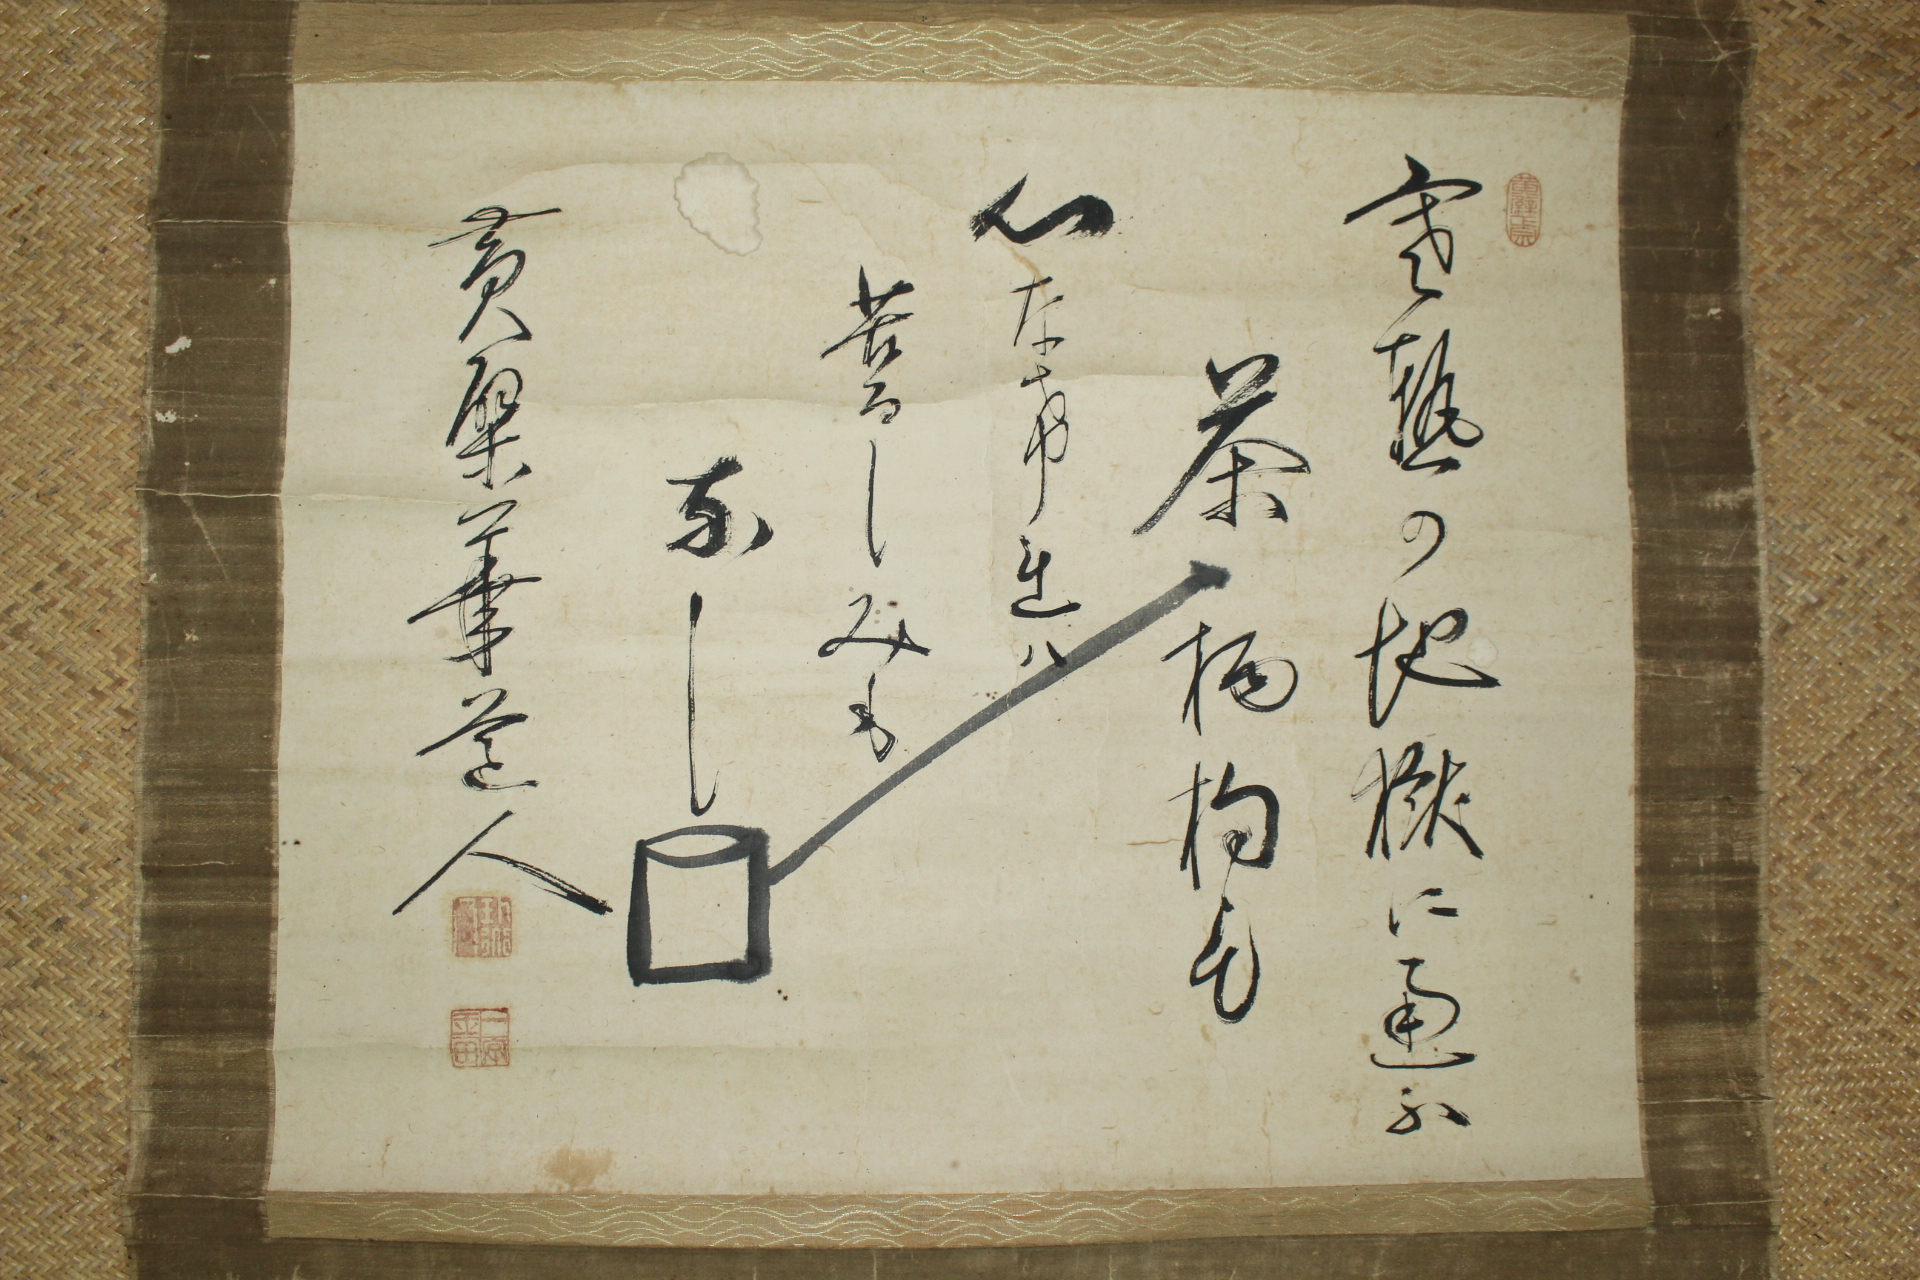 寒熱の地獄に通ふ
茶柄杓も
心なけれハ
苦しみも
なし
黄檗華道人